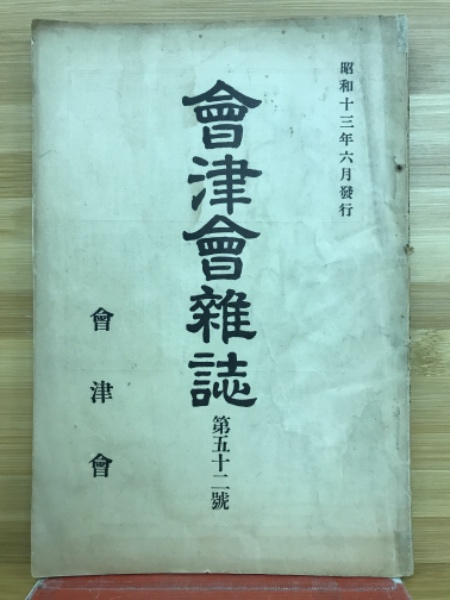 昭和十三年六月發行
會津會雜誌
第五十二號
會津會